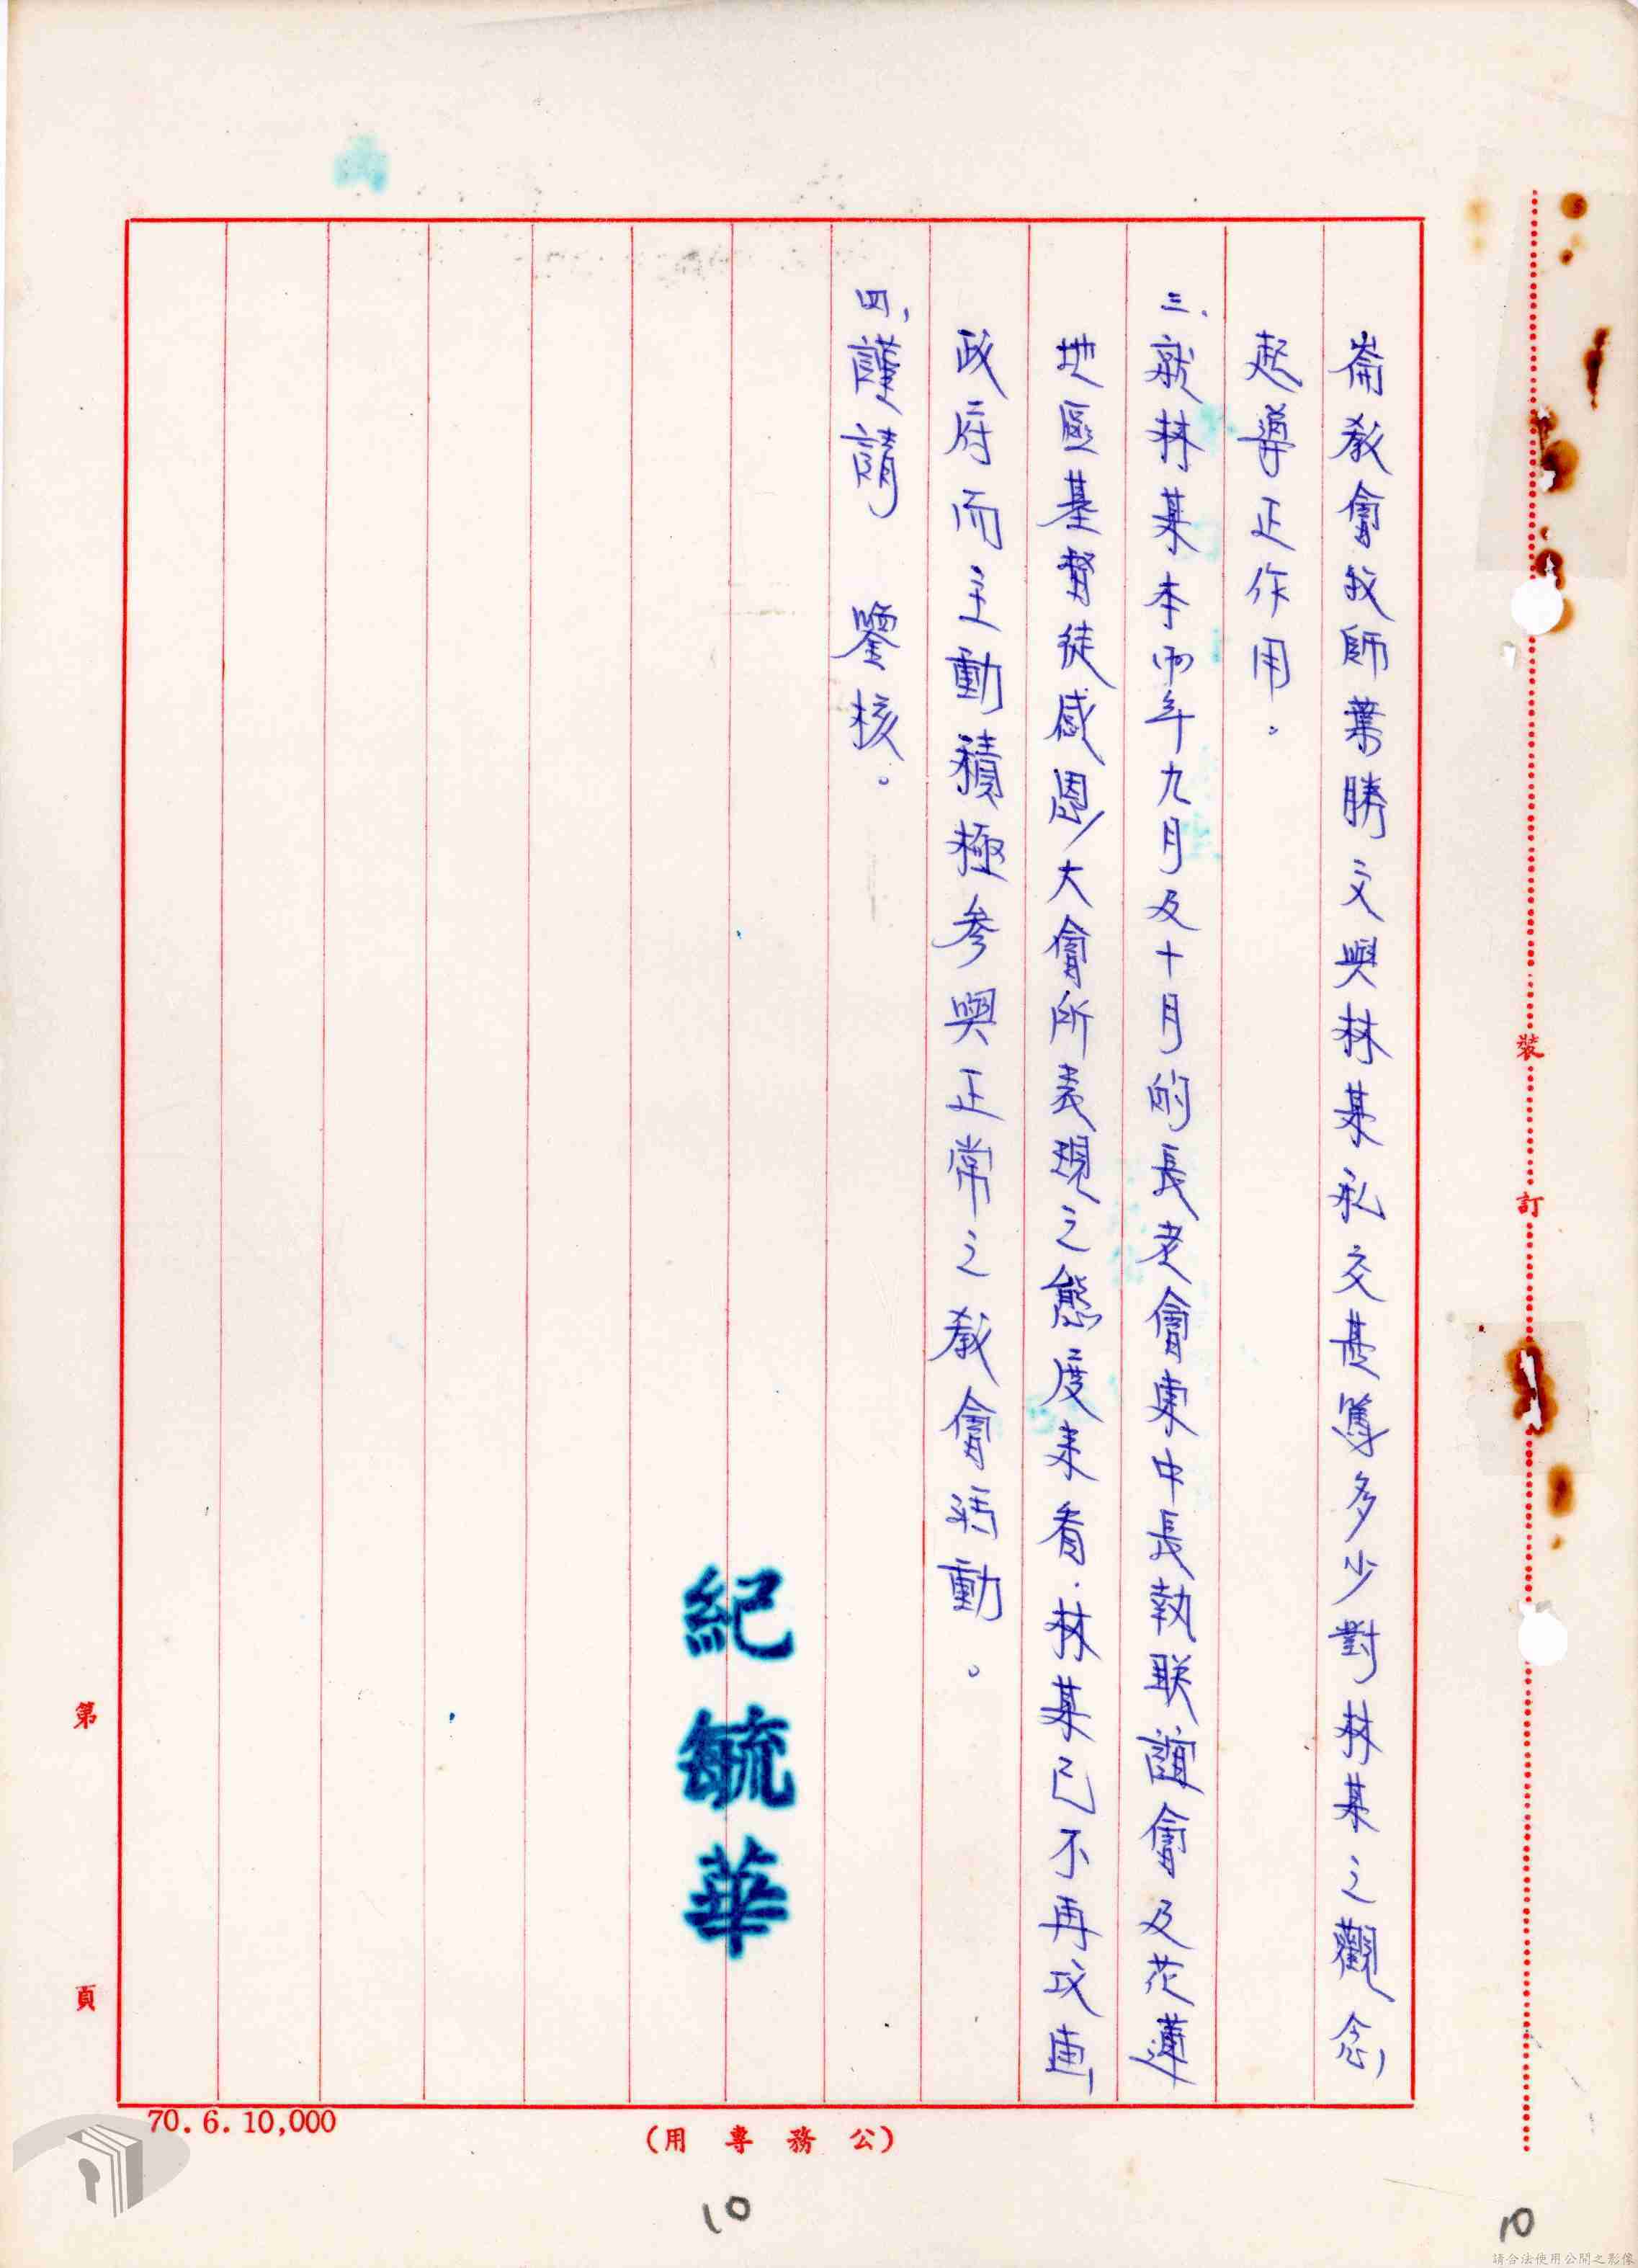 崙教會牧師葉勝文與林某私交甚篤多少對林某之觀念
起導正作用。
三、就林某本年九月及十月的長老會東中長執联誼會及花蓮
地區基督徒感恩大會所表現之態度來看.林某已不再攻
政府而主動積極參與正常之教會活動。
四、謹請　鑒核。
紀毓華
裝
訂
第
頁
70.6.10,000
(公務專用)
10
10
請合法使用公開之影像